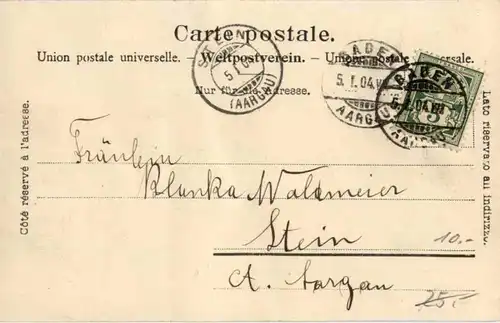 Carte postale.
Union postale universelle. – Weltpostverein. – Union postale universale.
Nur für die Adresse.
STEIN
5.I.04
(AARGAU)
BADEN
5.I.04.VII
AARGAU
BADEN
5.I.04.VII
AARGAU
5
Côté réservé à l'adresse.
Lato riservato all indirizzo.
Fräulein
Klanka Walzmeier
Stein
Ct. Aargau
10.-
25.-